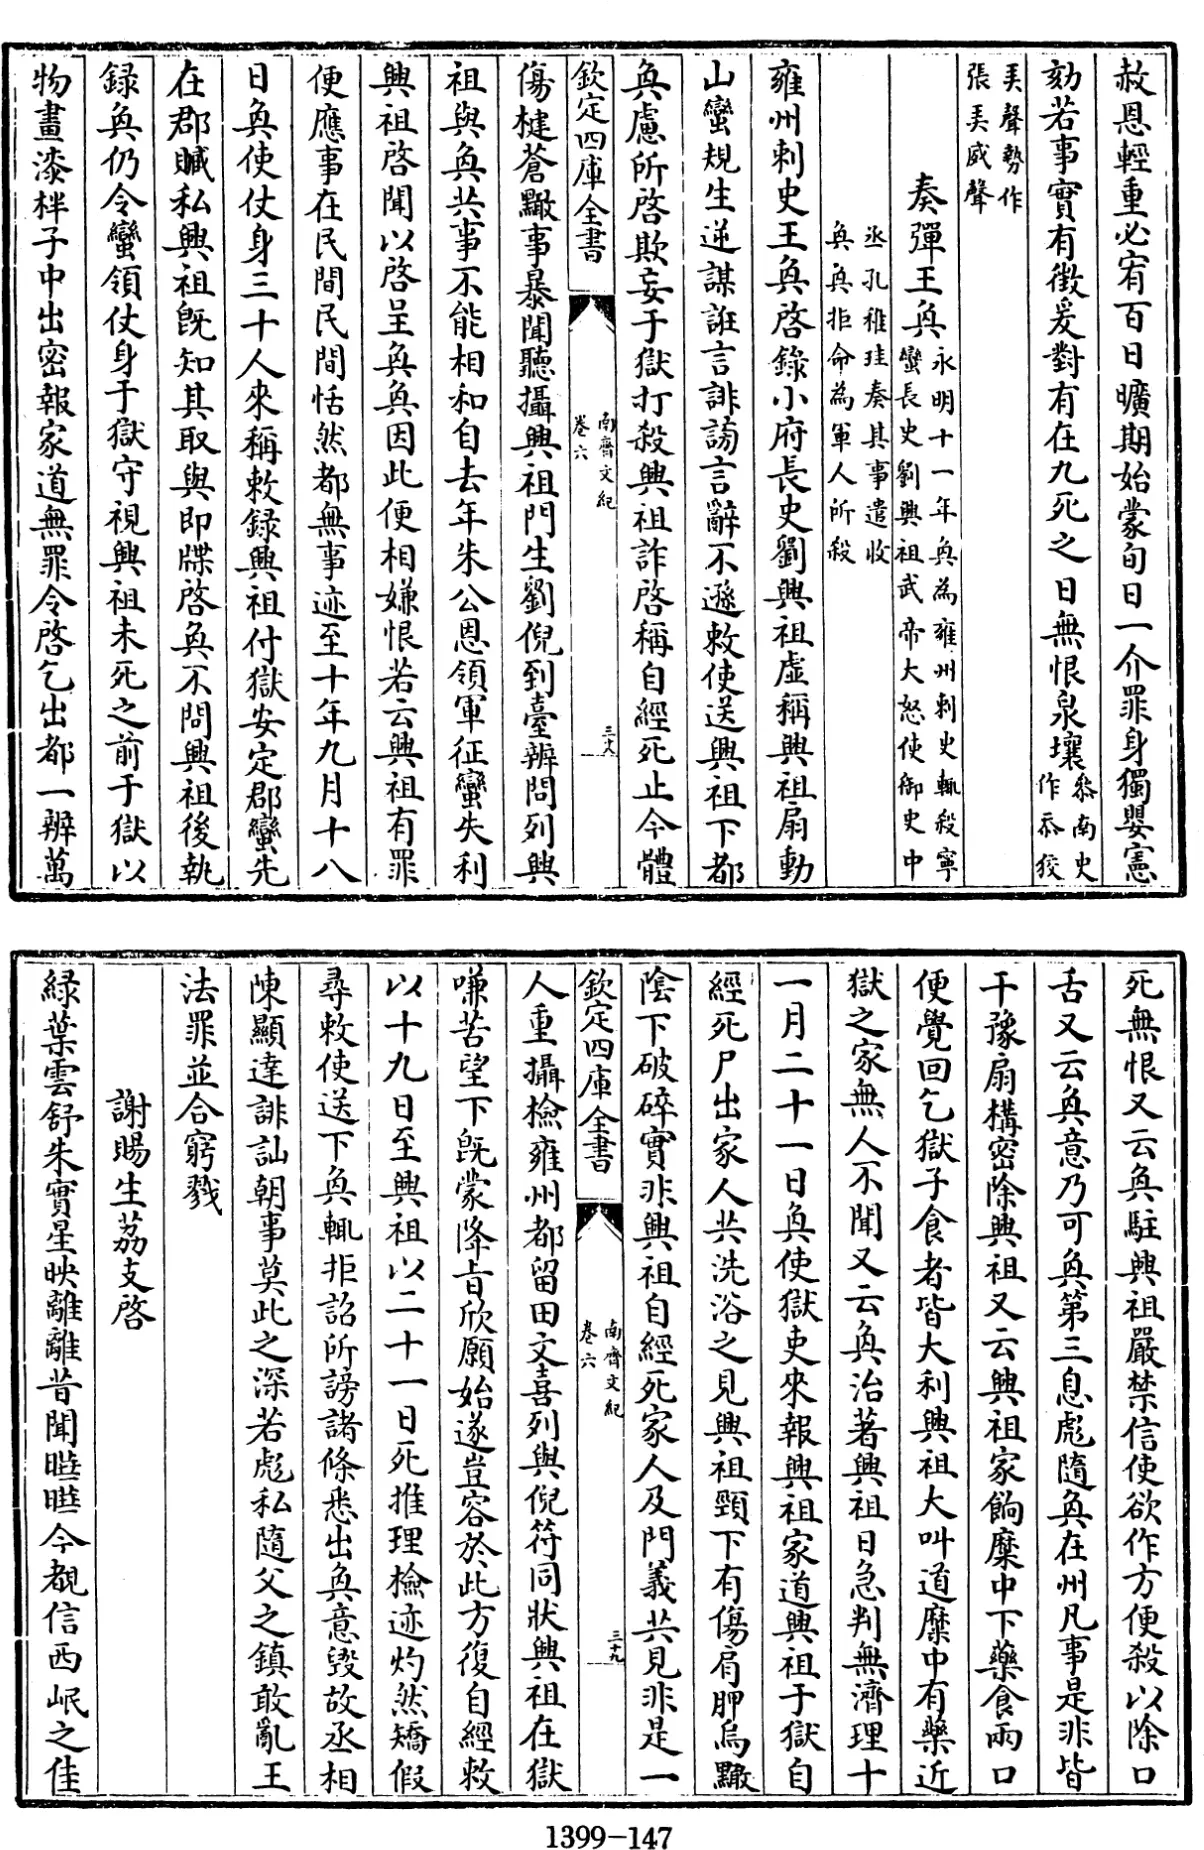 赦恩輕重必宥百日曠期始蒙旬日一介罪身獨嬰憲
劾若事實有徵爰對有在九死之日無恨泉壤叅南史
作忝狡
𢍆聲勢作
張𢍆威聲
奏彈王奐永明十一年奐為雍州刺史輒殺寧
蠻長史劉興祖武帝大怒使御史中
丞孔稚珪奏其事遣收
奐奐拒命為軍人所殺
雍州刺史王奐啓錄小府長史劉興祖虛稱興祖扇動
山蠻規生逆謀誑言誹謗言辭不遜敕使送興祖下都
奐慮所啓欺妄于獄打殺興祖詐啓稱自經死止今體
欽定四庫全書
南齊文紀
卷六
三十八
傷楗蒼黵事暴聞聽攝興祖門生劉倪到臺辨問列興
祖與奐共事不能相和自去年朱公恩領軍征蠻失利
興祖啓聞以啓呈奐奐因此便相嫌恨若云興祖有罪
便應事在民間民間恬然都無事迹至十年九月十八
日奐使仗身三十人來稱敕錄興祖付獄安定郡蠻先
在郡贓私興祖旣知其取與即牒啓奐不問興祖後執
録奐仍令蠻領仗身于獄守視興祖未死之前于獄以
物畫漆柈子中出密報家道無罪令啓乞出都一辨萬
死無恨又云奐駐興祖嚴禁信使欲作方便殺以除口
舌又云奐意乃可奐第三息彪隨奐在州凡事是非皆
干豫扇構密除興祖又云興祖家餉糜中下藥食兩口
便覺回乞獄子食者皆大利興祖大叫道糜中有藥近
獄之家無人不聞又云奐治著興祖日急判無濟理十
一月二十一日奐使獄吏來報興祖家道興祖于獄自
經死尸出家人共洗浴之見興祖頸下有傷肩胛烏黵
陰下破碎實非興祖自經死家人及門義共見非是一
欽定四庫全書
南齊文紀
卷六
三十九
人重攝檢雍州都留田文喜列與倪符同狀興祖在獄
嗛苦望下旣蒙降旨欣願始遂豈容於此方復自經敕
以十九日至興祖以二十一日死推理檢迹灼然矯假
尋敕使送下奐輒拒詔所謗諸條悉出奐意毀故丞相
陳顯達誹訕朝事莫此之深若彪私隨父之鎮敢亂王
法罪並合窮戮
謝賜生荔支啓
緑葉雲舒朱實星映離離昔聞曀曀今覩信西岷之佳
1399-147